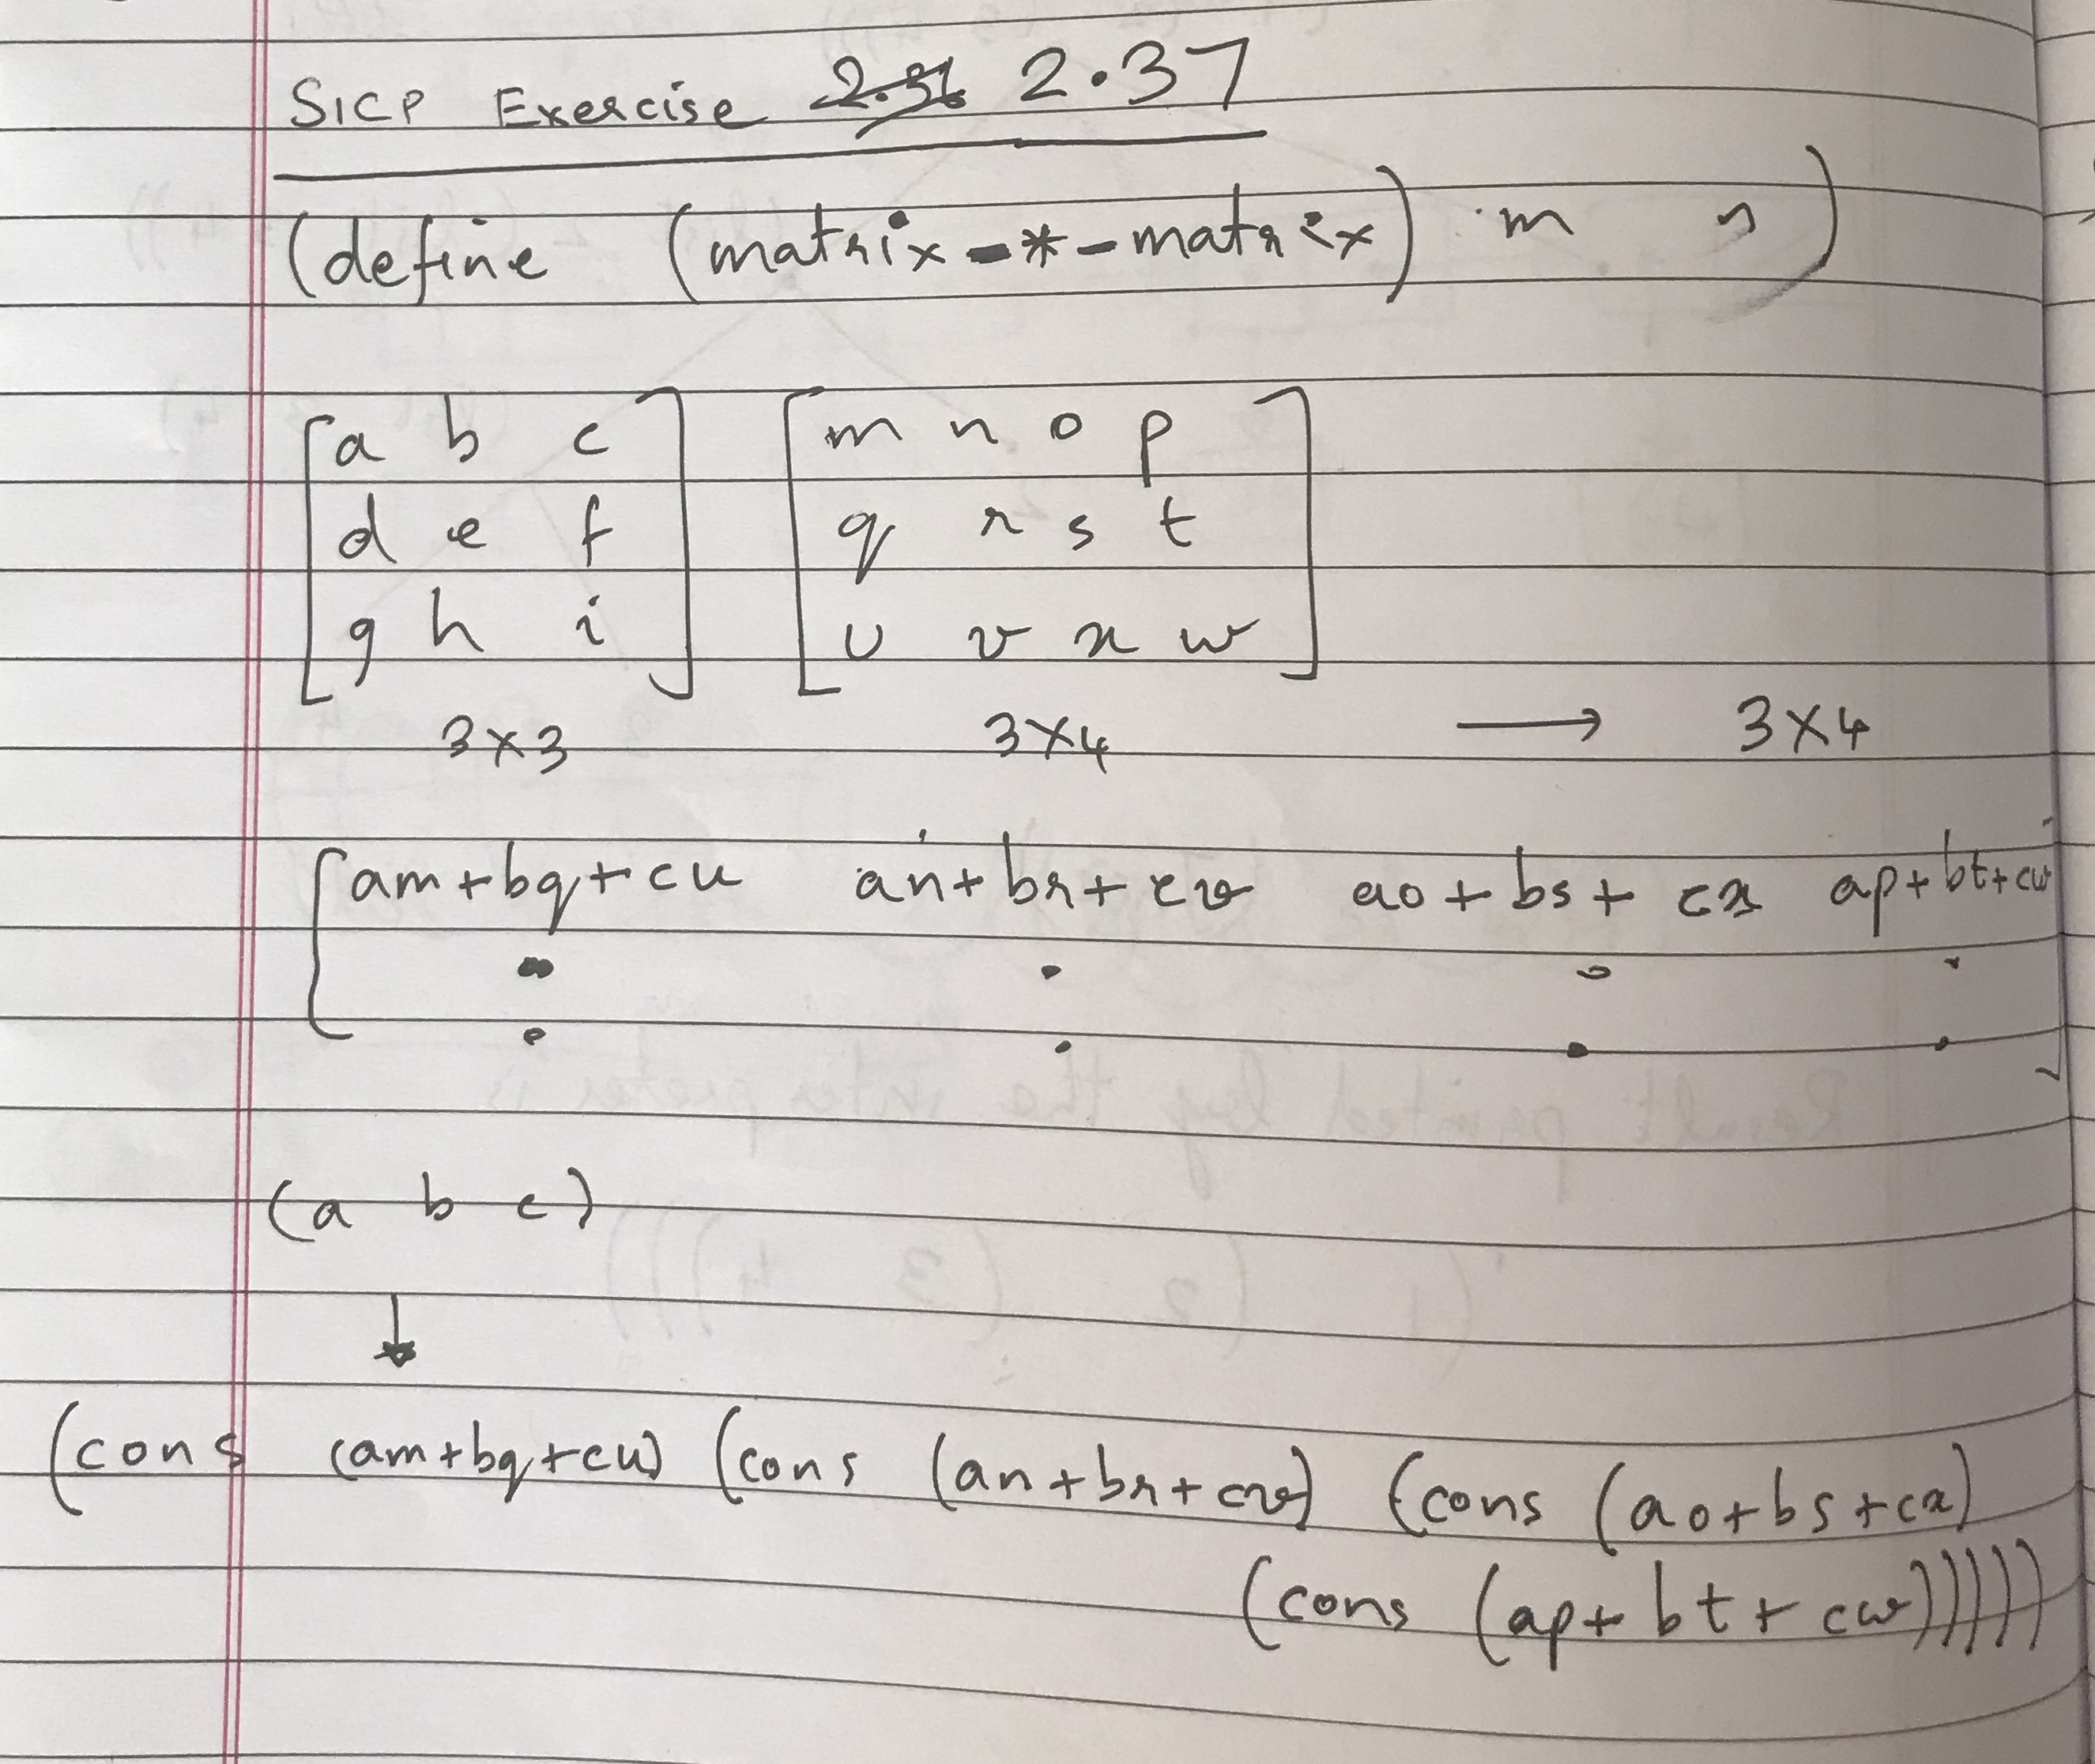 SICP Exercise 2.36 2.37
(define (matrix-*-matrix) m n)
a b c m n o p
d e f q r s t
g h i u v x w
3×3 3×4 → 3×4
am+bq+cu an+br+cv ao+bs+cx ap+bt+cw
(a b c)
↓
(cons (am+bq+cu) (cons (an+br+cv) (cons (ao+bs+cx)
(cons (ap+bt+cw)))))